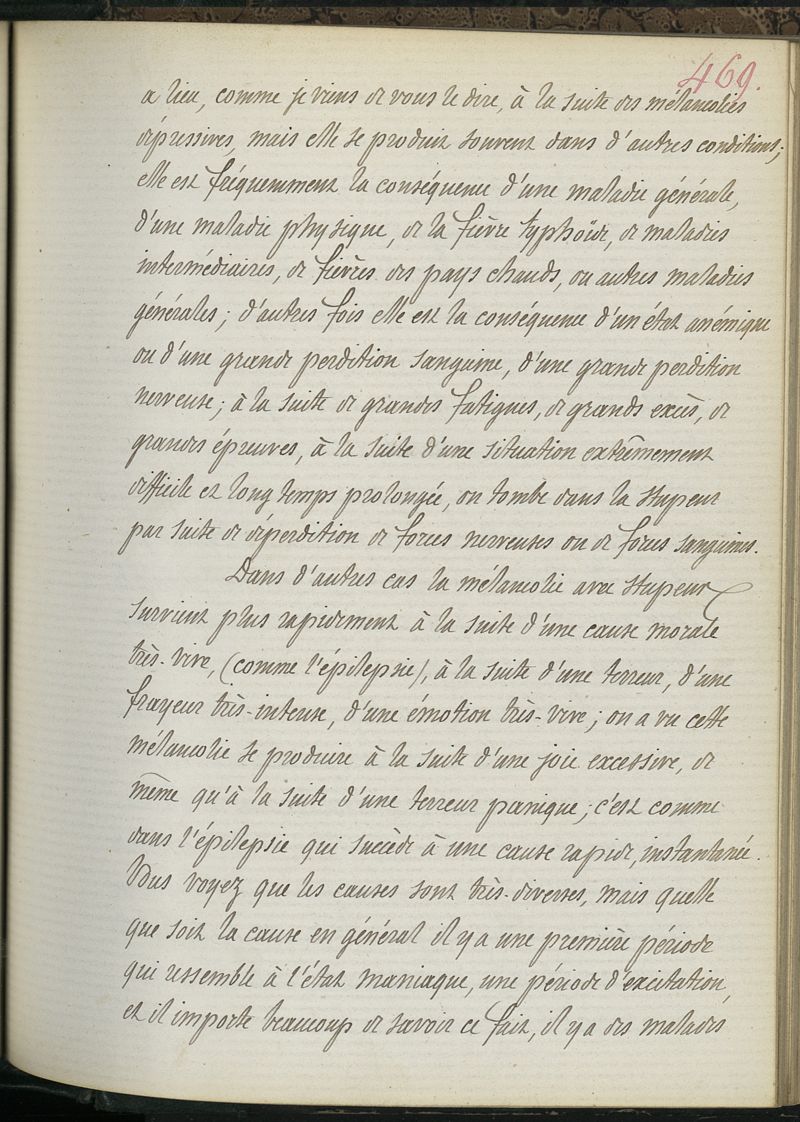 469.
a lieu, comme je viens de vous le dire, à la suite des mélancolies
dépressives, mais elle se produit souvent dans d'autres conditions;
elle est fréquemment la conséquence d'une maladie générale,
d'une maladie physique, de la fièvre typhoïde, de maladies
intermédiaires, de fièvres des pays chauds, ou autres maladies
générales; d'autres fois elle est la conséquence d'un état anémique
ou d'une grande perdition sanguine, d'une grande perdition
nerveuse; à la suite de grandes fatigues, de grands excès, de
grandes épreuves, à la suite d'une situation extrêmement
difficile et long temps prolongée, on tombe dans la stupeur
par suite de déperdition de forces nerveuses ou de forces sanguines.
Dans d'autres cas la mélancolie avec stupeur
survient plus rapidement à la suite d'une cause morale
très-vive, (comme l'épilepsie), à la suite d'une terreur, d'une
frayeur très-intense, d'une émotion très-vive; on a vu cette
mélancolie se produire à la suite d'une joie excessive, de
même qu'à la suite d'une terreur panique; c'est comme
dans l'épilepsie qui succède à une cause rapide, instantanée.
Vous voyez que les causes sont très-diverses, mais quelle
que soit la cause en général il y a une première période
qui ressemble à l'état maniaque, une période d'excitation,
et il importe beaucoup de savoir ce fait, il y a des malades